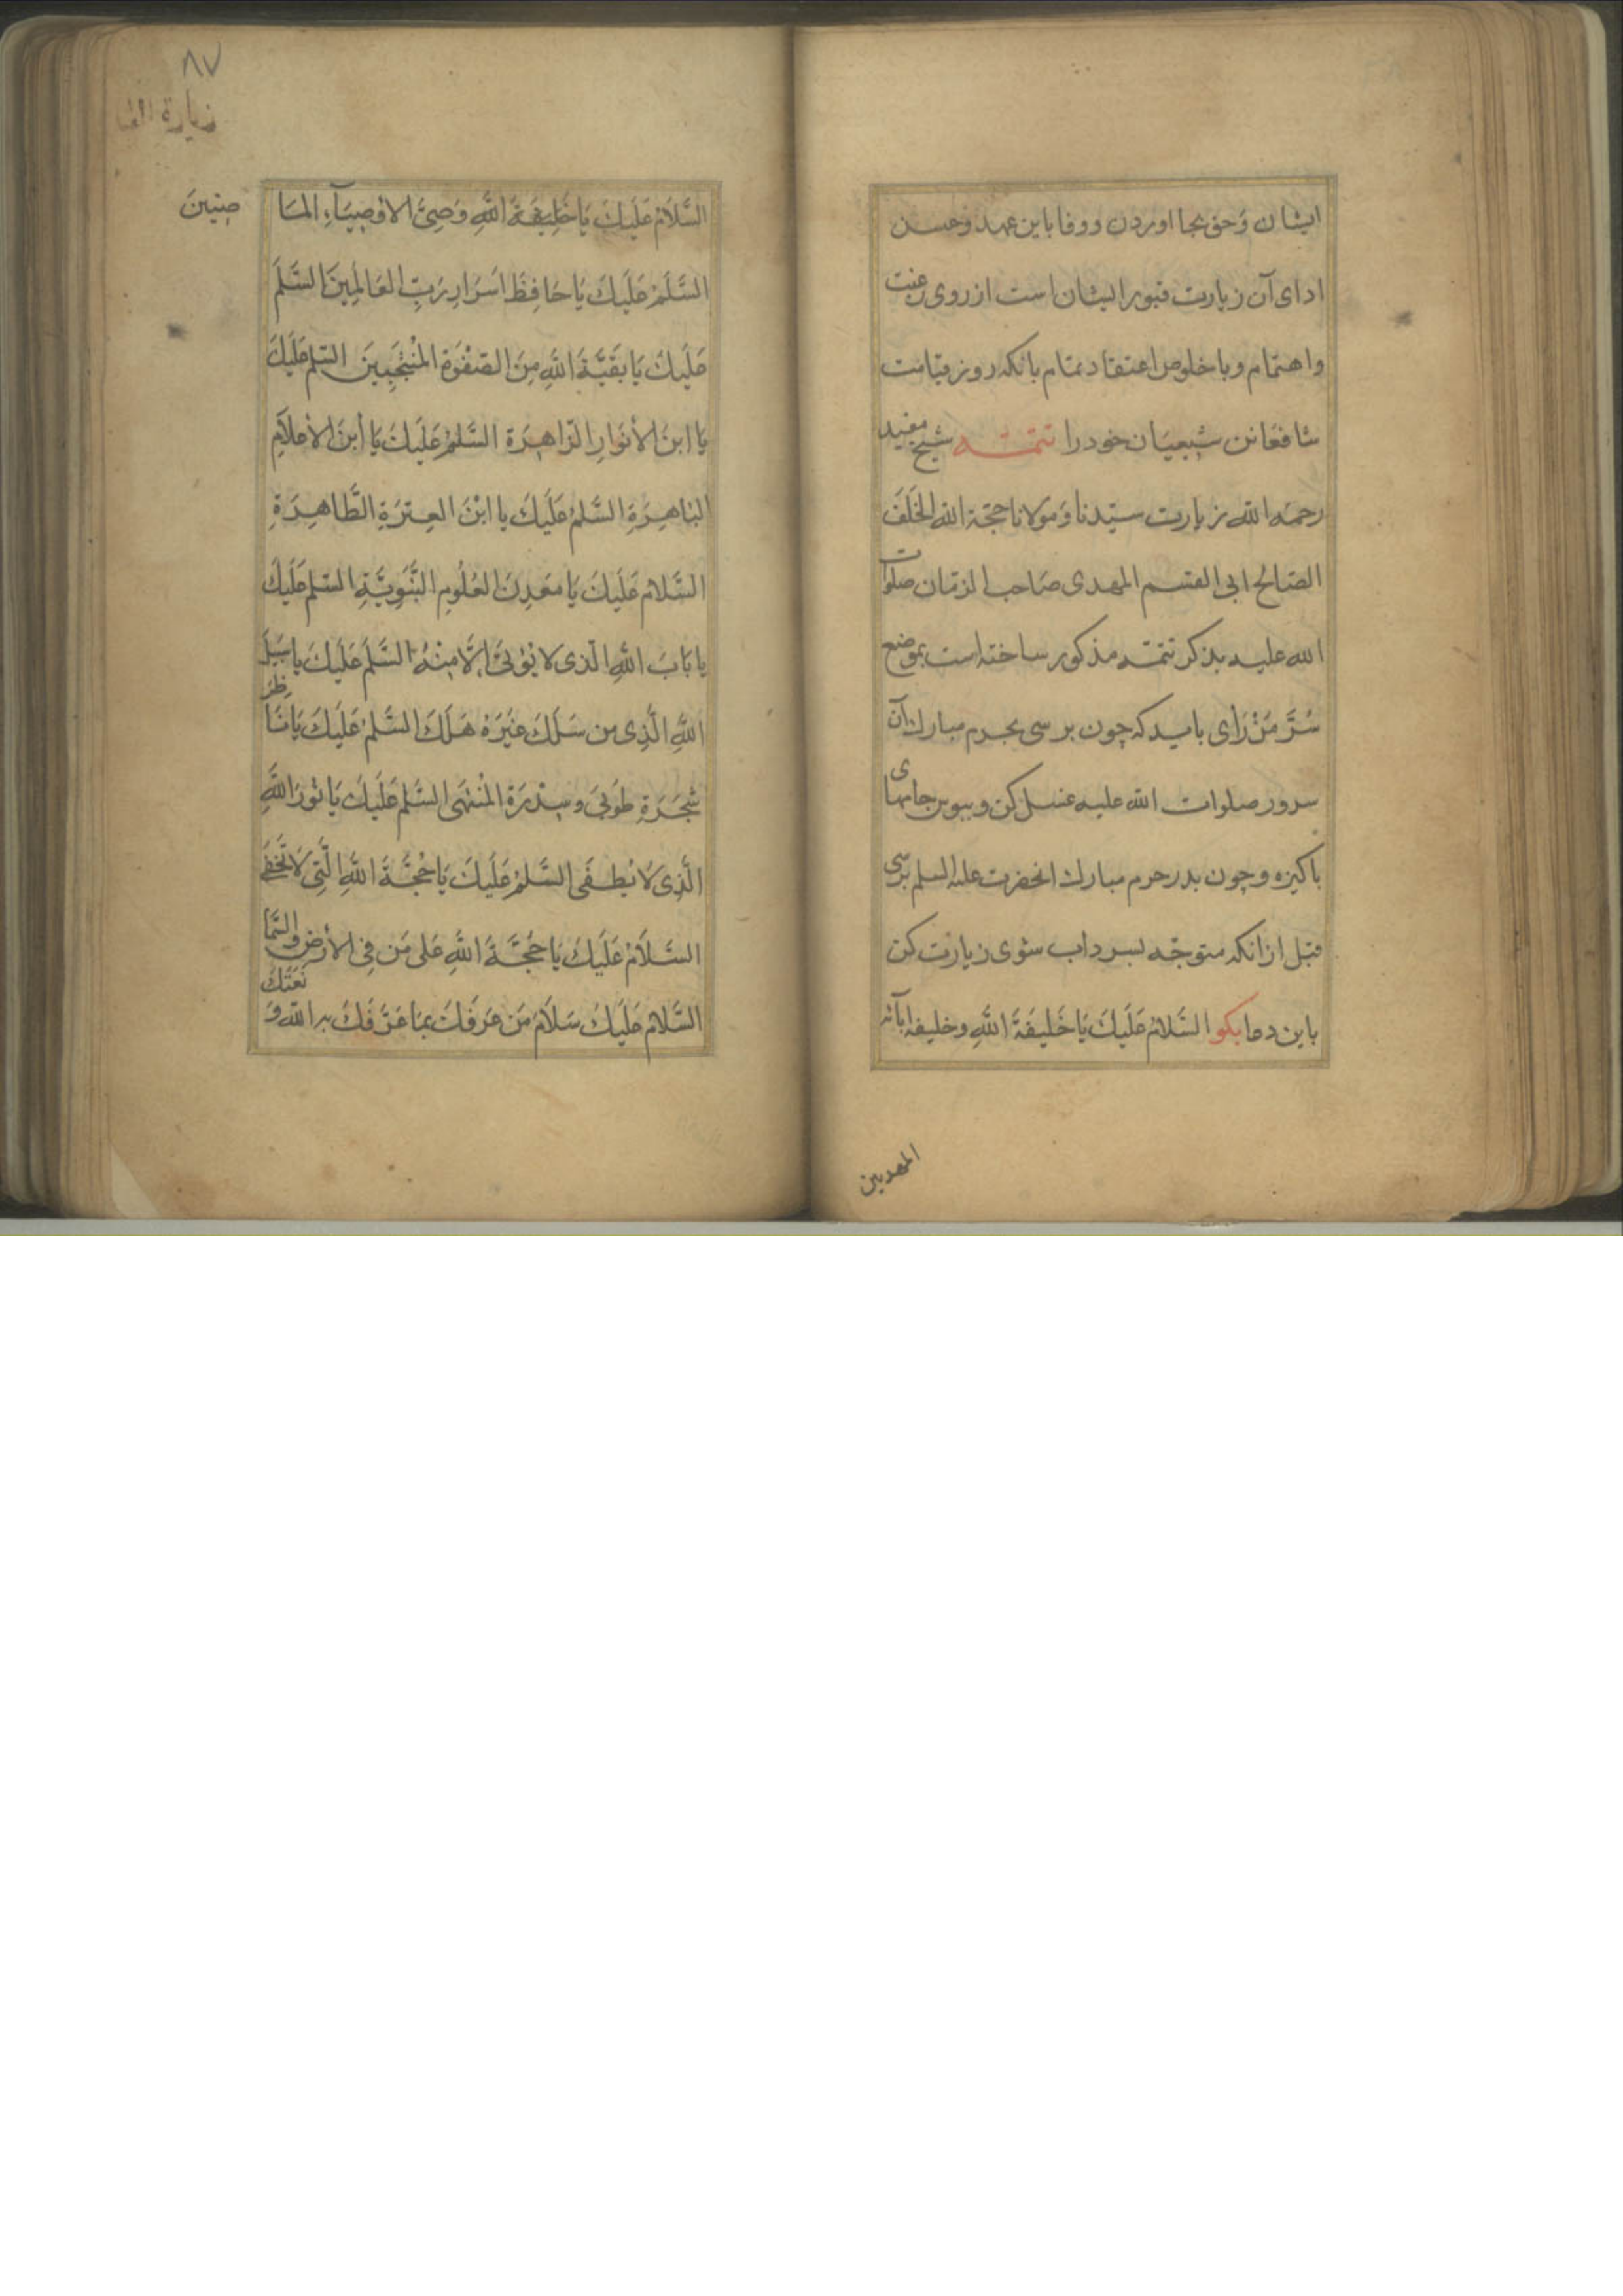 ایشان وَحق بجا اوردن و وفا باین عهد وحسن
ادای آن زیارت قبور ایشان است از روی رغبت
واهتمام و با خلوص اعتقاد تمام بانکه روز قیامت
شافعانن شیعیَان خود را تتمّه شیخ مفید
رحمه الله زیارت سیّدنا وَمولانا حجّة الله الخَلَف
الصّالح ابی القسم المهدی صَاحب الزمان صلوات
الله علیه بذکر تتمّه مذکور ساخته است بموضع
سُرَّ مَنْ رَأی باید که چون برسی بحرم مبارك آن
سرور صلوات الله علیه غسل کن وبپوس جامهای
باکیزه وچون بدر حرم مبارك انحضرت علیه السلم برسی
قبل ازانکه متوجّه بسرداب شوی زیارت کن
باین دعا بکو السَّلامُ عَلَيْكَ يَا خَليفَةَ اللَّهِ وخليفه ابآئه
المهديين
٨٧
زيارة
السَّلاَمُ عَلَيكَ يَا خَلِيفَةَ اللَّهِ وَصِيَّ الاوْصِيَآءِ المَا
ضِينَ
السَّلَمُ عَلَيكَ يَا حَافِظَ اسَرَارِ رَبِّ العَالَمِينَ السَّلَمُ
عَلَيكَ يَا بَقَيَّةَ اللَّهِ مِنَ الصَفْوَةِ المُنْتَجَبِينَ السّلم عَلَيكَ
يَا ابنَ الأنوَارِ الزاهِرَة السَّلَمُ عَلَيكَ يَا ابنَ الأعلاَمِ
البَاهِرَةِ السَّلَمُ عَلَيكَ يا ابْنَ العِترَةِ الطَّاهِرَةِ
السَّلامُ عَلَيكَ يَا مَعَدِنَ العُلُومِ النَّبَوِيَّةِ السّلم عَلَيكَ
يا بَابَ اللَّهِ الّذى لا يُؤتىَ إلَّا مِنْهُ السَّلَم عَلَيكَ يا سَبِيلَ
اللَّهِ الَّذِى من سَلَكَ غَيَرَهْ هَلَكَ السَّلمُ عَلَيكَ يَا نَاظِرَ
شَجَرَةِ طُوبىَ وسِدْرَةِ المُنْتَهَى السَّلم عَلَيكَ يَا نُورَ اللَّهِ
الَّذِى لاَ يُطفَى السَّلَمُ عَلَيكَ يَا حُجَّةَ اللَّهِ الَّتِى لاَ تَخفَى
السَّلاَمُ عَلَيكَ يَا حُجَّةَ اللَّهِ عَلى مَن فِى الأرَضِ والسَّمَا
السَّلامُ عَلَيكَ سَلاَمَ مَن عَرَفَكَ بِمَا عَرَّفَكَ به الله وَ
نَعَتَكَ